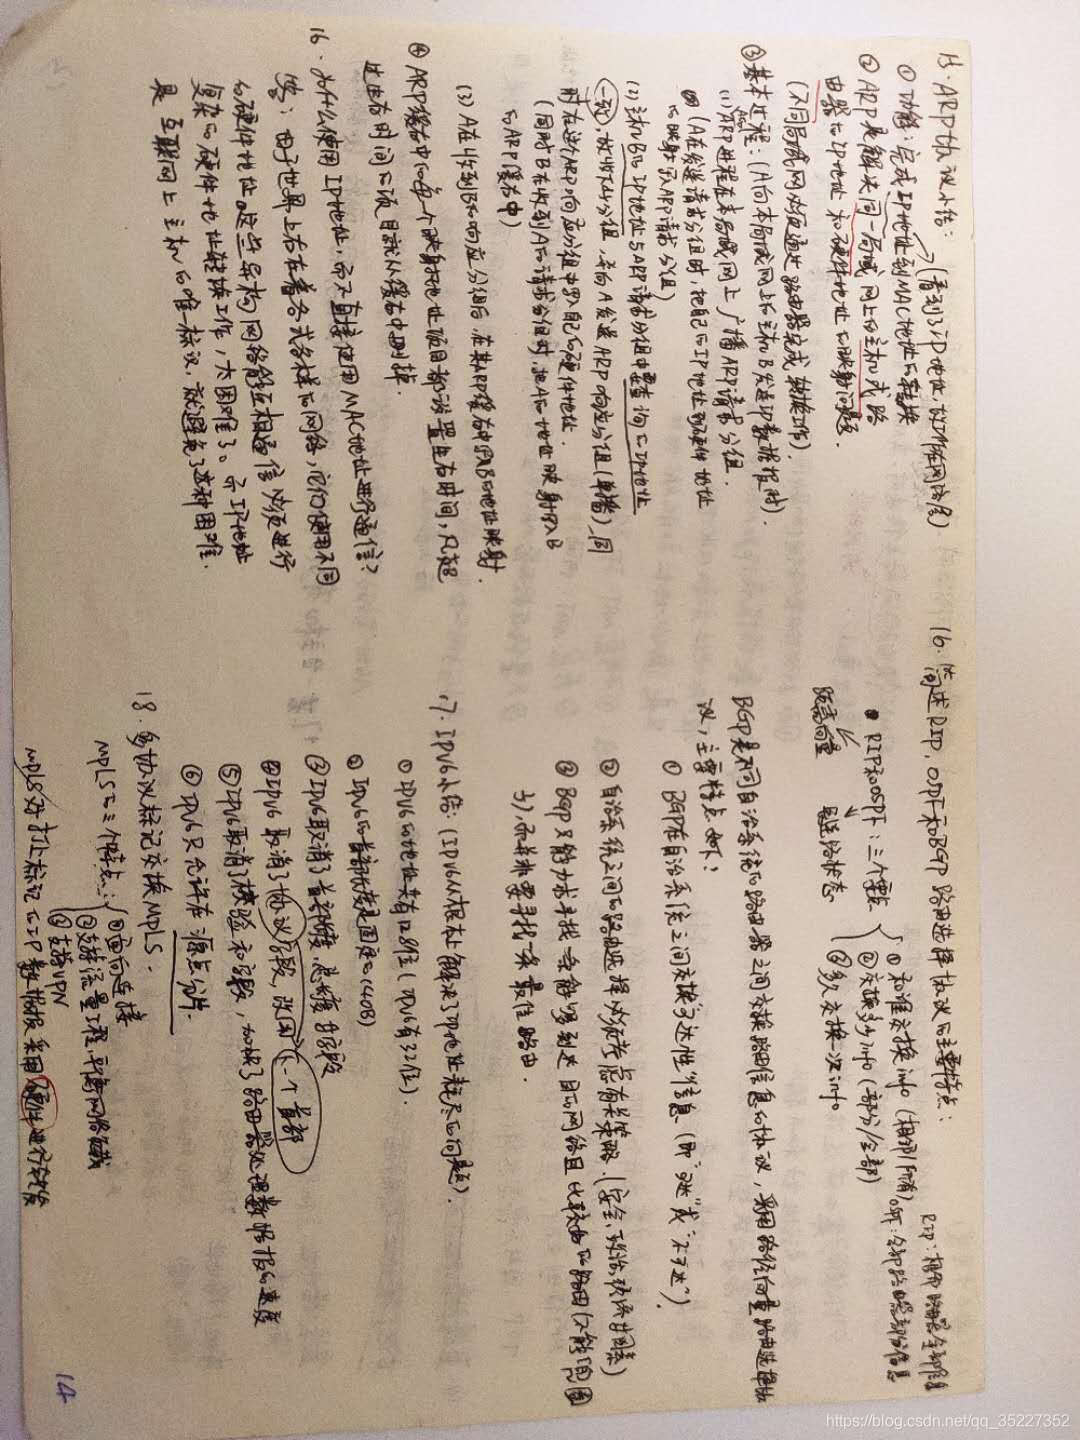 15. ARP协议小结：
① 功能：完成IP地址到MAC地址的转换
(看到了IP地址，故工作在网络层)
② ARP是解决同一局域网上的主机或路
由器的IP地址和硬件地址的映射问题.
(不同局域网必须通过路由器完成转换工作).
③基本过程：(A向本局域网上的主机B发送IP数据报时).
(1) ARP进程在本局域网上广播ARP请求分组.
(A在发送请求分组时，把自己的IP地址到硬件地址
的映射写入ARP请求分组)
(2) 主机B的IP地址与ARP请求分组中要查询的IP地址
一致，故收下分组，并向A发送ARP响应分组(单播)，同
时在这个ARP响应分组中写入自己的硬件地址.
(同时B在收到A的请求分组时，把A的地址映射写入B
的ARP缓存中)
(3) A在收到B的响应分组后，在其ARP缓存中写入B的地址映射.
④ ARP缓存中的每个映射地址项目都设置生存时间，凡超
过生存时间的项目就从缓存中删掉.
16. 为什么使用IP地址，而不直接使用MAC地址进行通信？
答：由于世界上存在着各式各样的网络，它们使用不同
的硬件地址，这些异构网络能互相通信必须进行
复杂的硬件地址转换工作，太困难了。而IP地址
是互联网上主机的唯一标识，就避免了这种困难.
16. 简述RIP，OSPF和BGP路由选择协议的主要特点：
RIP和OSPF：三个要点
① 和谁交换info (相邻/所有)
② 交换多少info (部分/全部)
③ 多久交换一次info
RIP：相邻路由器全部信息
OSPF：全部路由器部分信息
距离向量
链路状态
BGP是不同自治系统的路由器之间交换路由信息的协议，采用路径向量路由选择协
议，主要特点如下：
① BGP在自治系统之间交换"可达性"信息 (即"可达"或"不可达").
② 自治系统之间的路由选择必须考虑有关策略. (安全、政治、经济等因素)
③ BGP只能力求寻找一条能够到达目的网络且比较好的路由(不能兜圈
子)，而并非要寻找一条最佳路由.
17. IPV6小结：(IPV6从根本上解决了IP地址耗尽的问题).
① IPV6的地址共有128位 (IPV4有32位).
② IPV6的首部长度是固定的(40B)
③ IPV6取消了首部长度、总长度等字段
④ IPV6取消了协议字段，改用下一个首部
⑤ IPV6取消了检验和字段，加快了路由器处理数据报的速度
⑥ IPV6只允许在源点分片.
18. 多协议标记交换MPLS.
MPLS的三个特点：
① 面向连接
② 支持流量工程，平衡网络负载
③ 支持VPN
MPLS对打上标记的IP数据报采用硬件进行转发
14
https://blog.csdn.net/qq_35227352